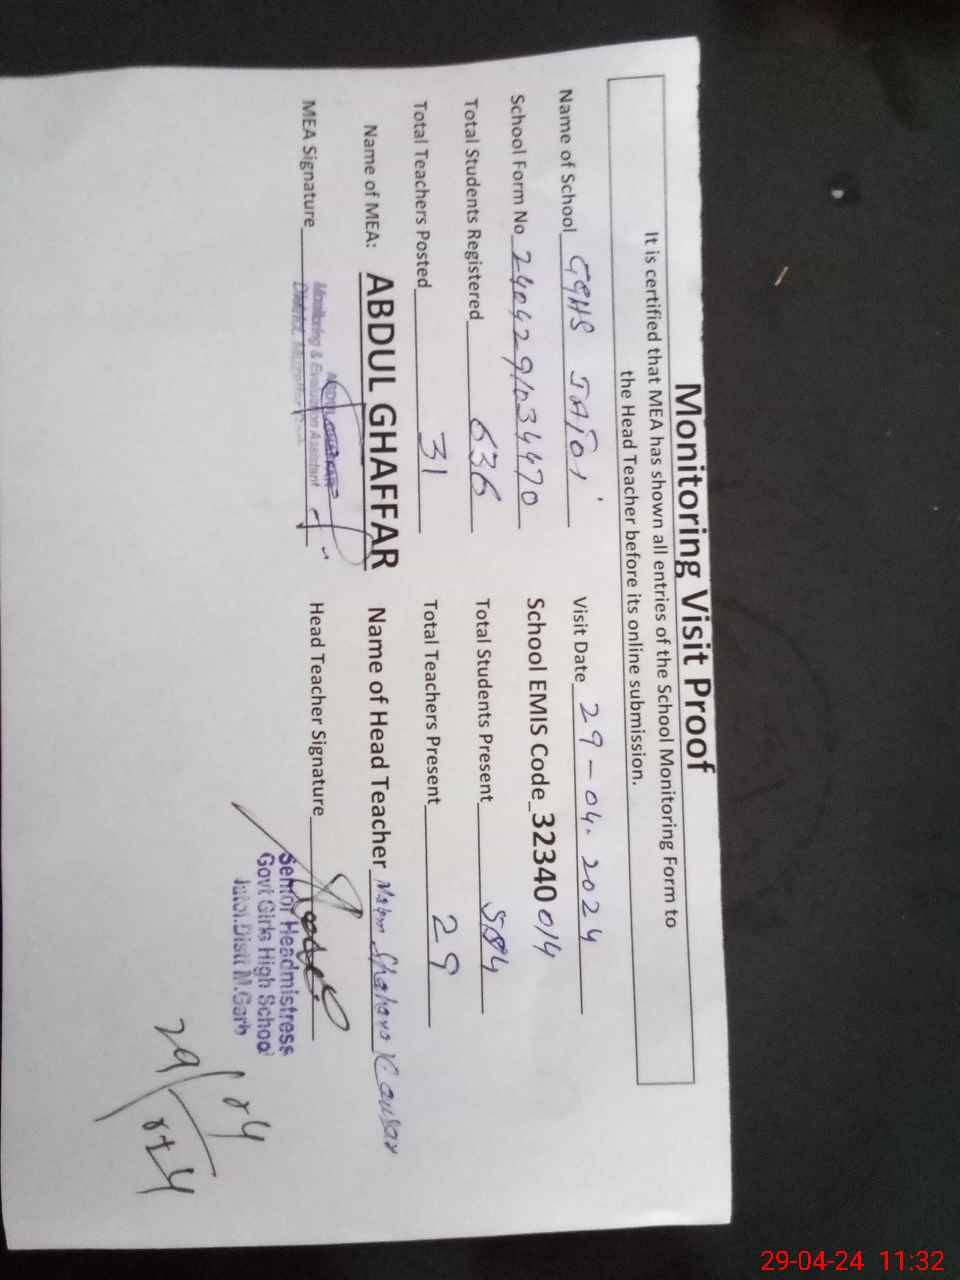 Monitoring Visit Proof
It is certified that MEA has shown all entries of the School Monitoring Form to
the Head Teacher before its online submission.
Name of School GGHS JATOI Visit Date 29-04.2024
School Form No 240429/034470 School EMIS Code 32340 014
Total Students Registered 636 Total Students Present 584
Total Teachers Posted 31 Total Teachers Present 29
Name of MEA: ABDUL GHAFFAR Name of Head Teacher Shahana Kausar
MEA Signature Head Teacher Signature
ABDUL GHAFFAR
Monitoring & Evaluation Assistant
District,
Senior Headmistress
Govt Girls High School
Jatoi.Distt M.Garh
29/04
29-04-24 11:32